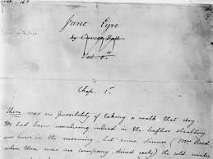 Jane Eyre
by Currer Bell
Vol. 1st
Chap. 1st
There was no possibility of taking a walk that day.
We had been wandering indeed in the leafless shrubbery
an hour in the morning, but since dinner (Mrs Reed
when there was no company, dined early) the cold winter